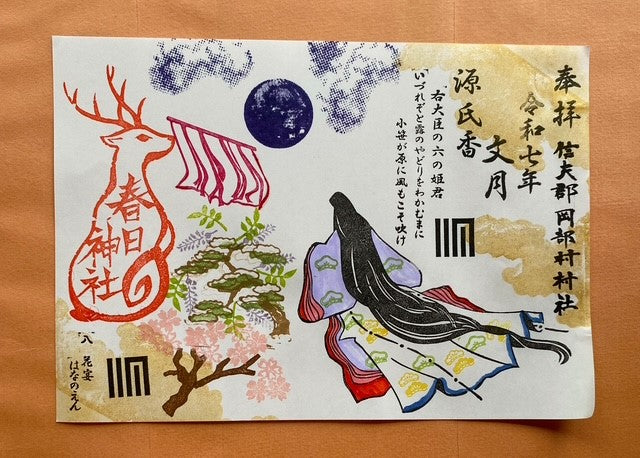 奉拝 信夫郡岡部村村社
令和七年
文月
源氏香
右大臣の六の姫君
いづれぞと露のやどりをわかむまに
小笹が原に風もこそ吹け
春日
神社
八 花宴
はなのえん